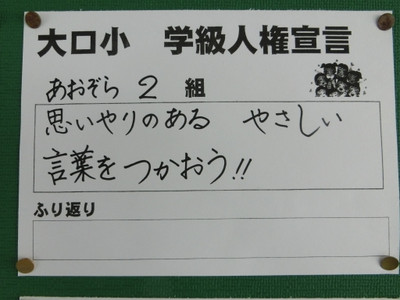 大口小 学級人権宣言
あおぞら 2 組
思いやりのある やさしい
言葉をつかおう!!
ふり返り